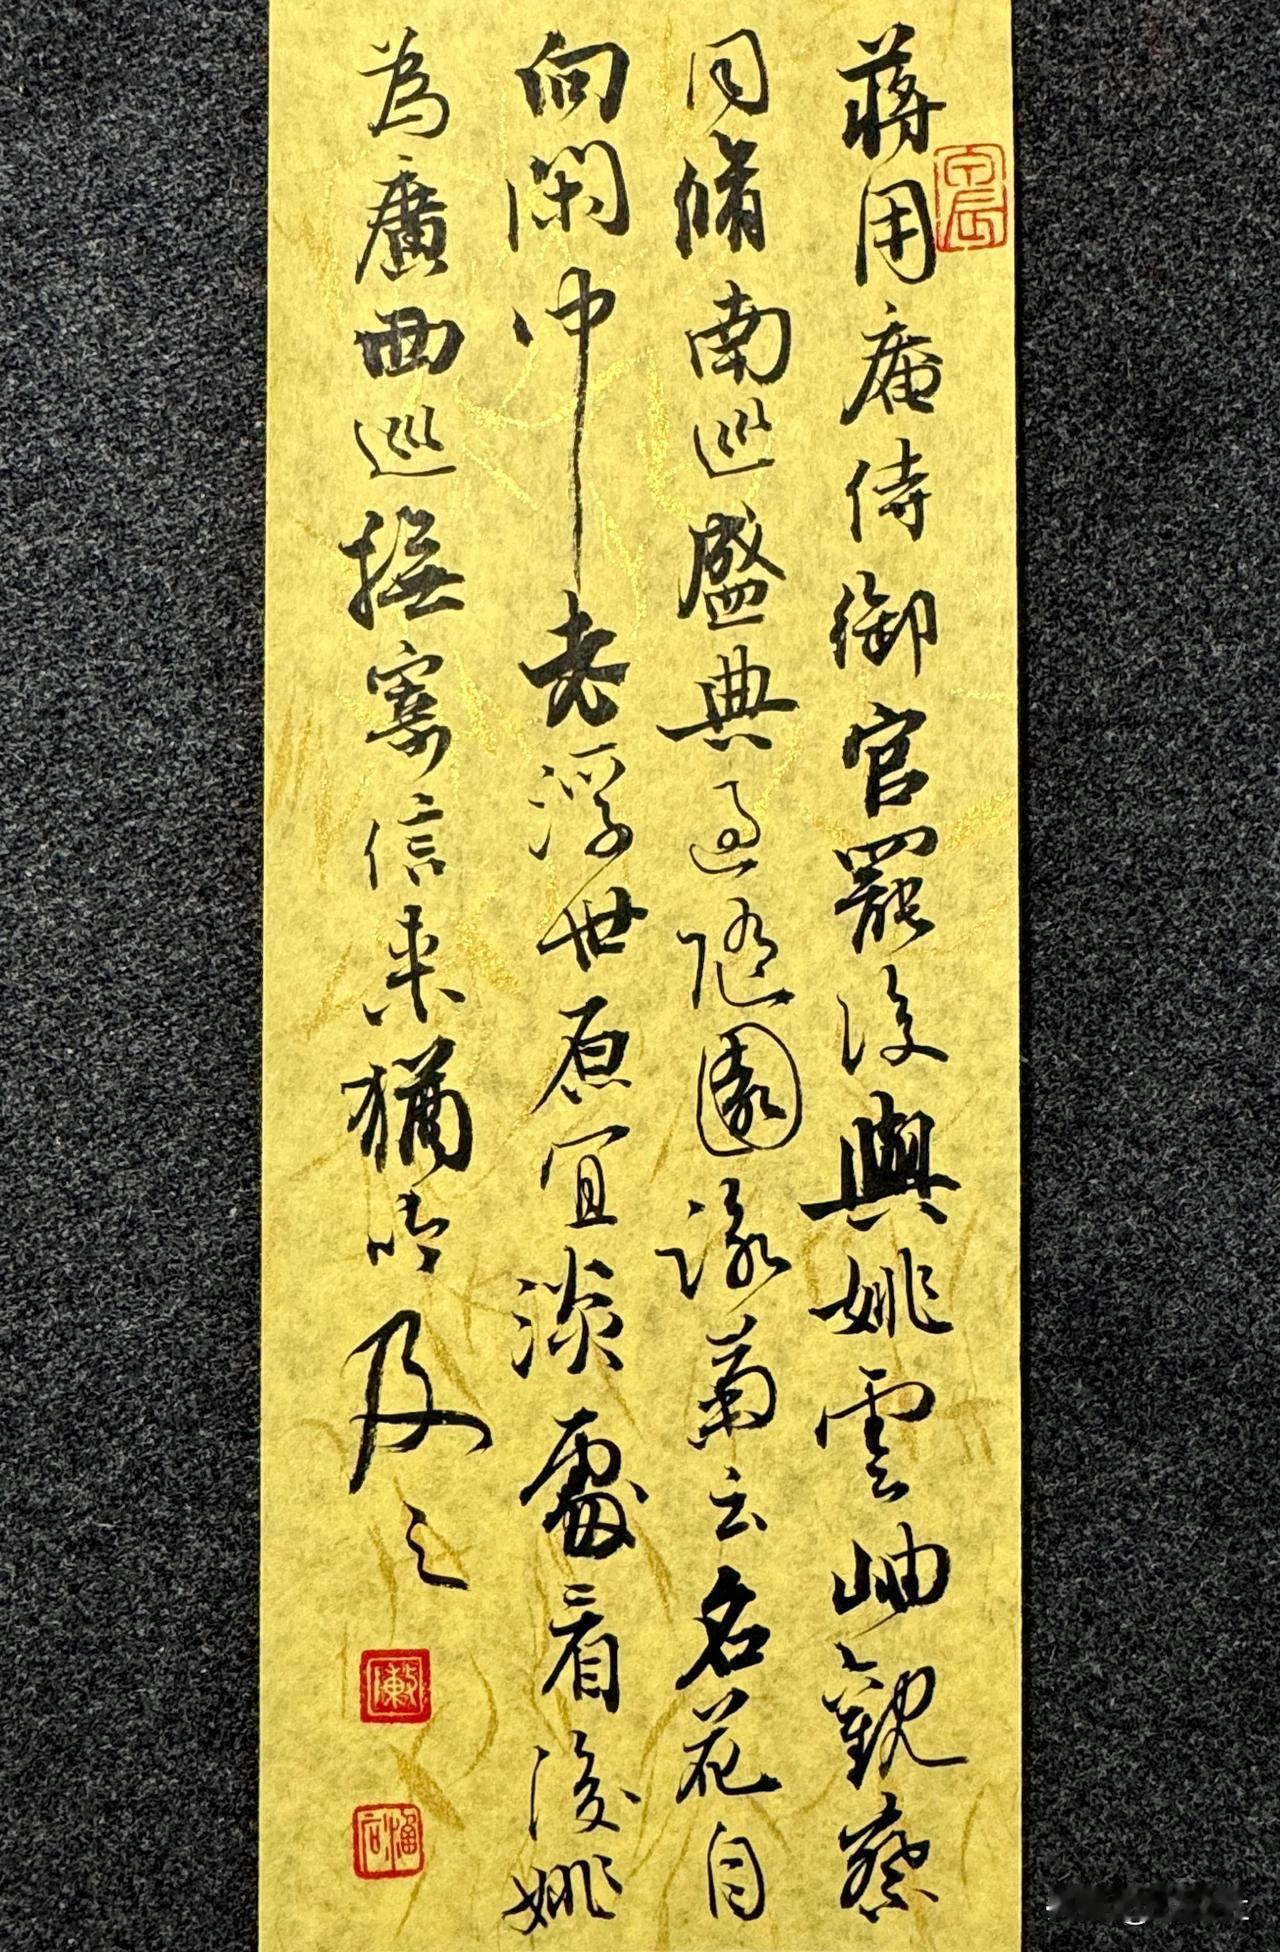 蔣用庵侍御官罷後與姚雲岫觀察
同脩南巡盛典過隨園詠菊云名花自
向閑中老浮世原宜淡處看後姚
為廣西巡撫寄信來猶時時及之